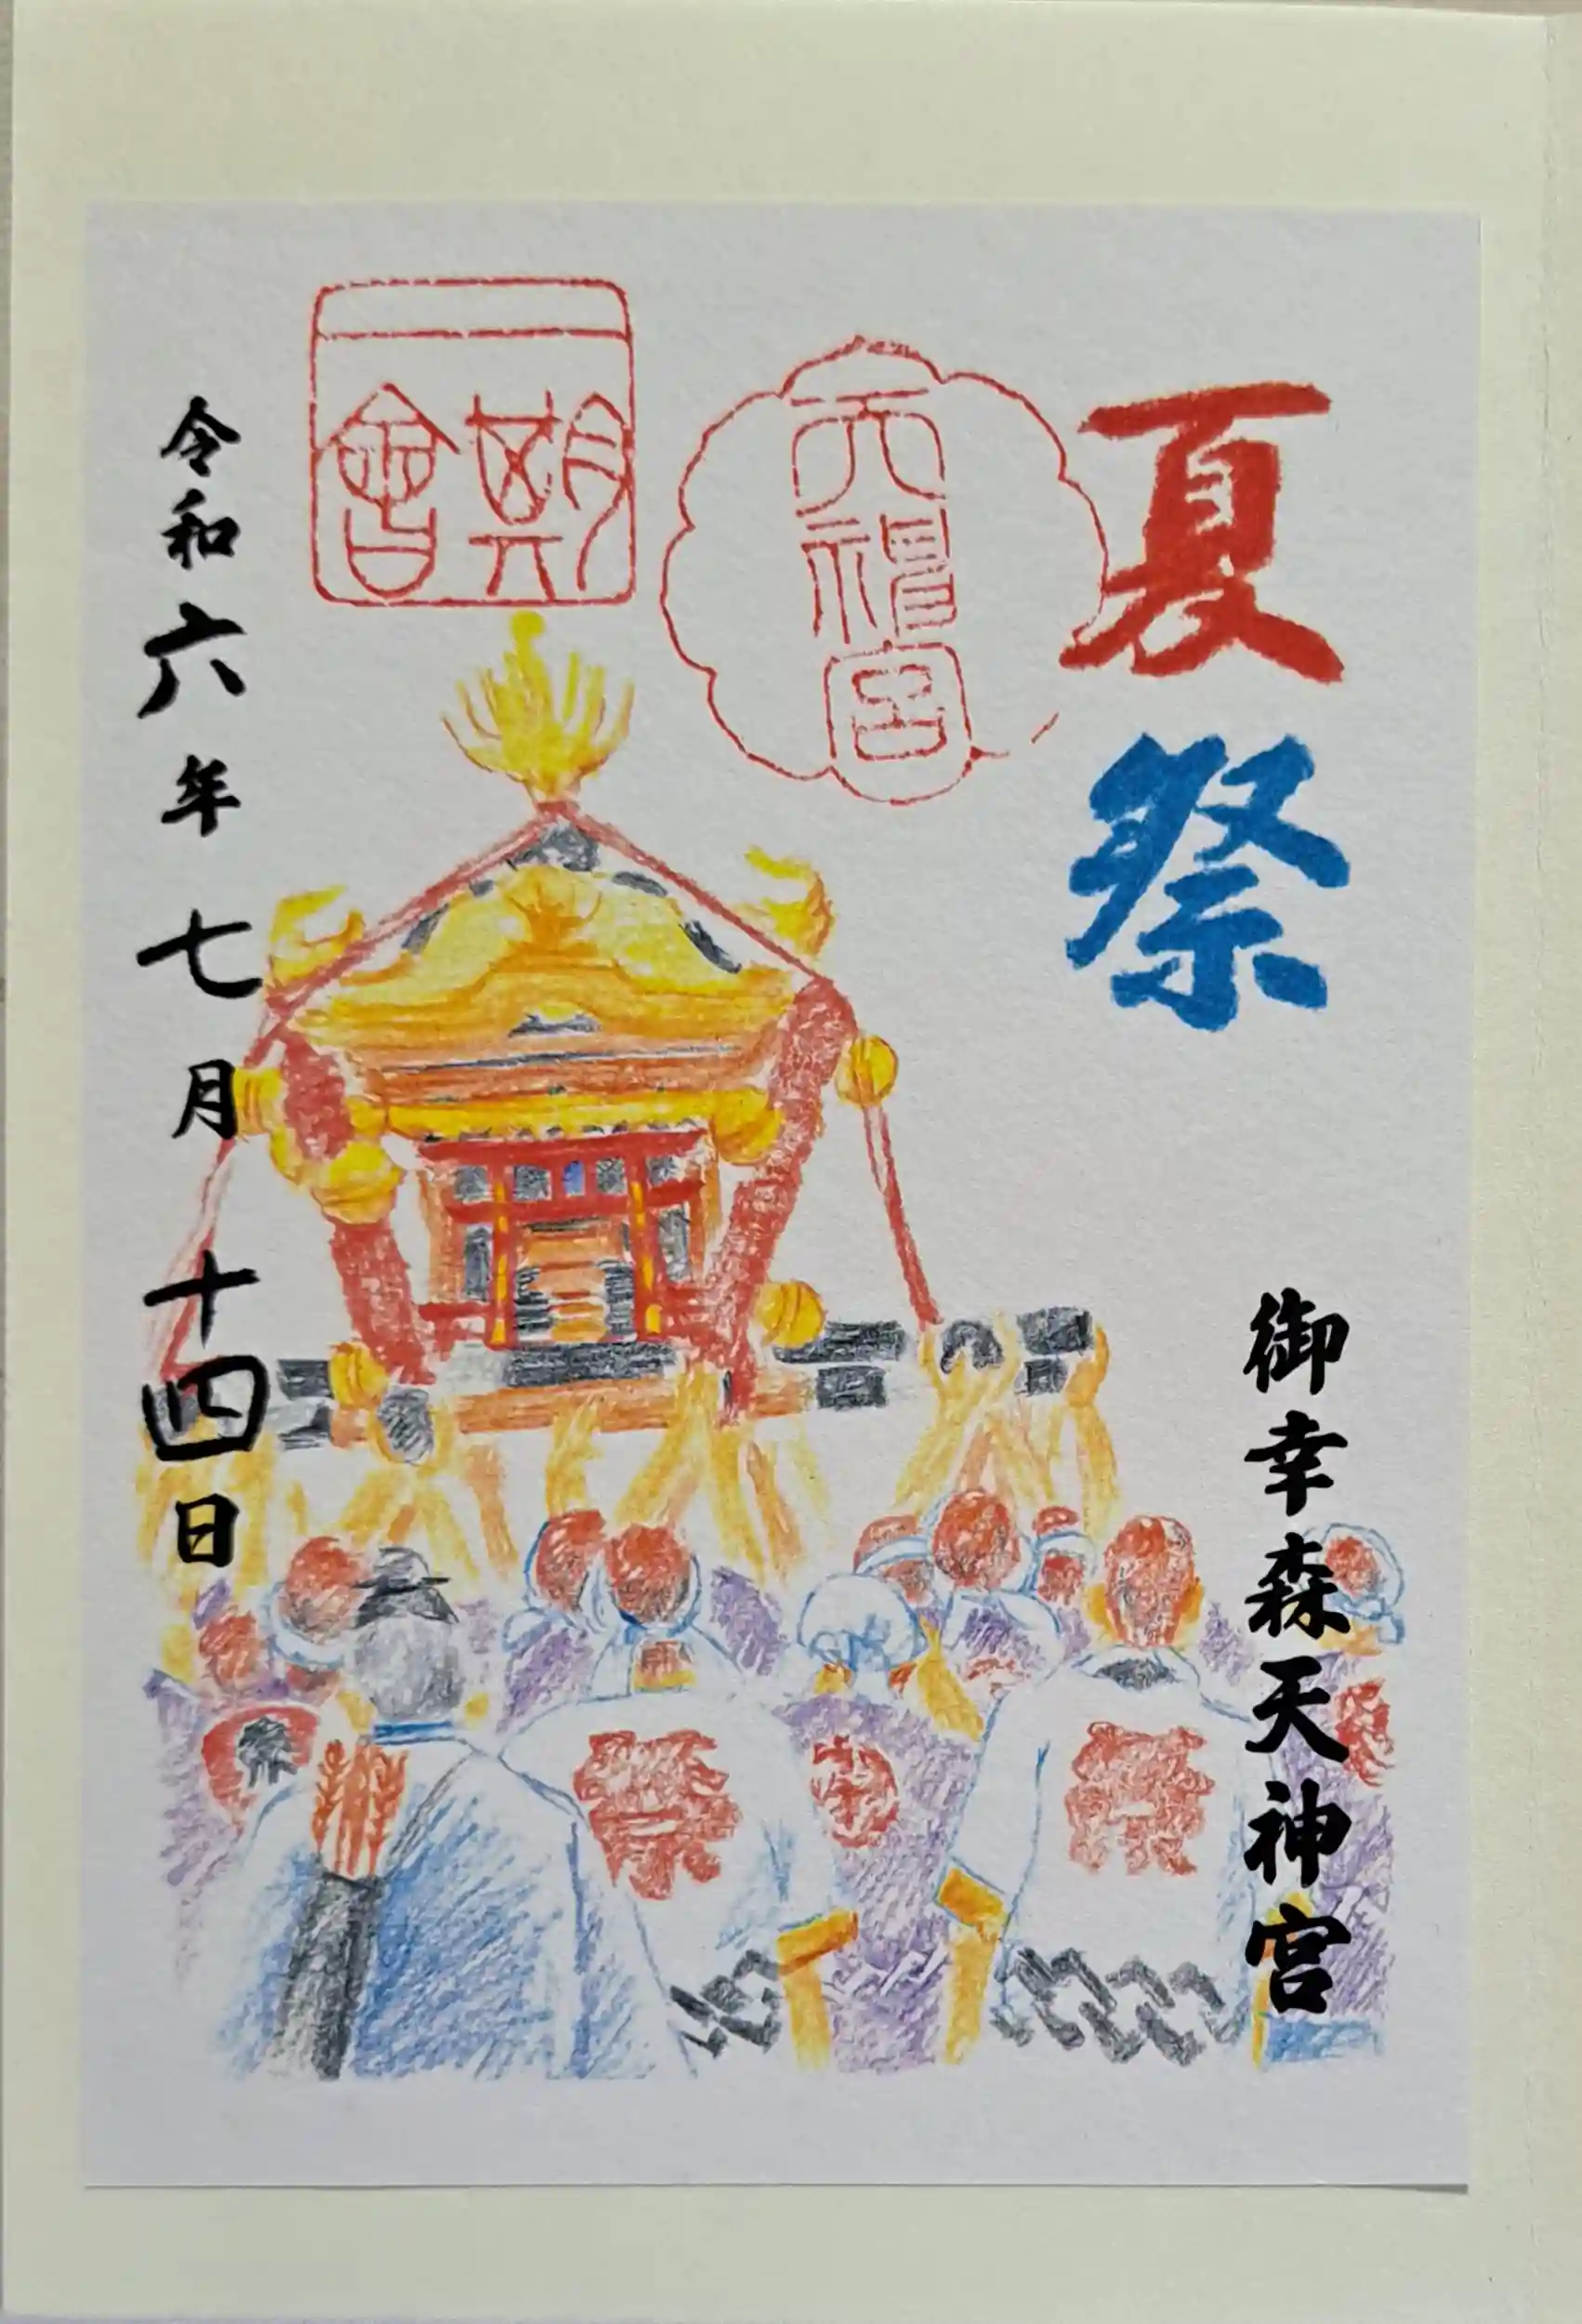 夏祭
御幸森天神宮
天満宮
一期一會
令和六年七月十四日
祭
祭